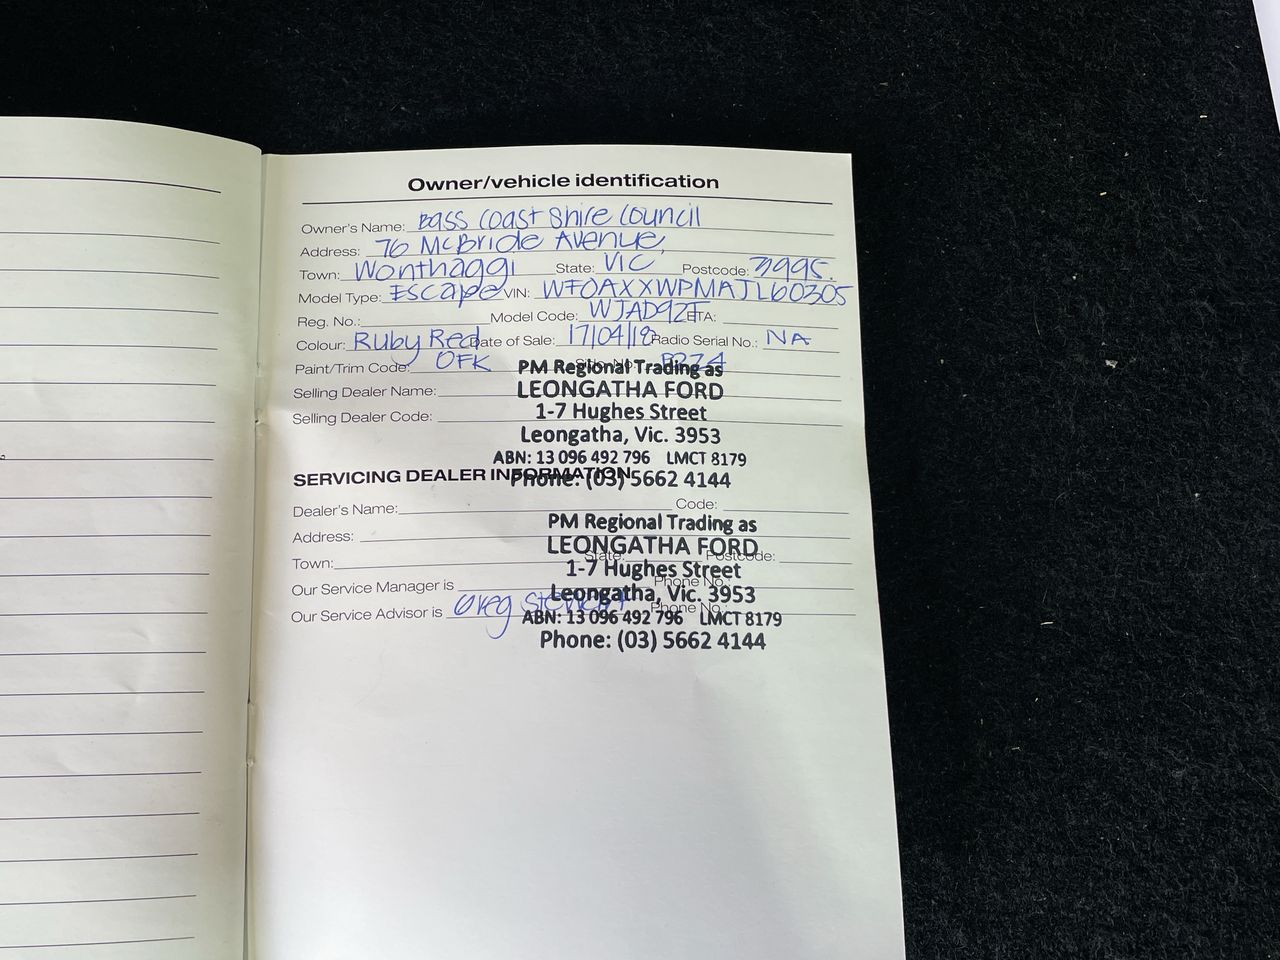 Owner/vehicle identification
Owner's Name: Bass Coast Shire Council
Address: 76 McBride Avenue,
Town: Wonthaggi State: VIC Postcode: 3995.
Model Type: Escape VIN: WF0AXXWPMAJL60305
Reg. No.: Model Code: WJAD92F ETA:
Colour: Ruby Red Date of Sale: 17/04/18 Radio Serial No.: NA
Paint/Trim Code: OFK
PM Regional Trading as
Selling Dealer Name: LEONGATHA FORD
Selling Dealer Code: 1-7 Hughes Street
Leongatha, Vic. 3953
ABN: 13 096 492 796 LMCT 8179
SERVICING DEALER INFORMATION Phone: (03) 5662 4144
Dealer's Name: Code:
PM Regional Trading as
Address: LEONGATHA FORD
Town: State: Postcode:
1-7 Hughes Street
Our Service Manager is Phone No.:
Leongatha, Vic. 3953
Our Service Advisor is Greg Phone No.:
ABN: 13 096 492 796 LMCT 8179
Phone: (03) 5662 4144